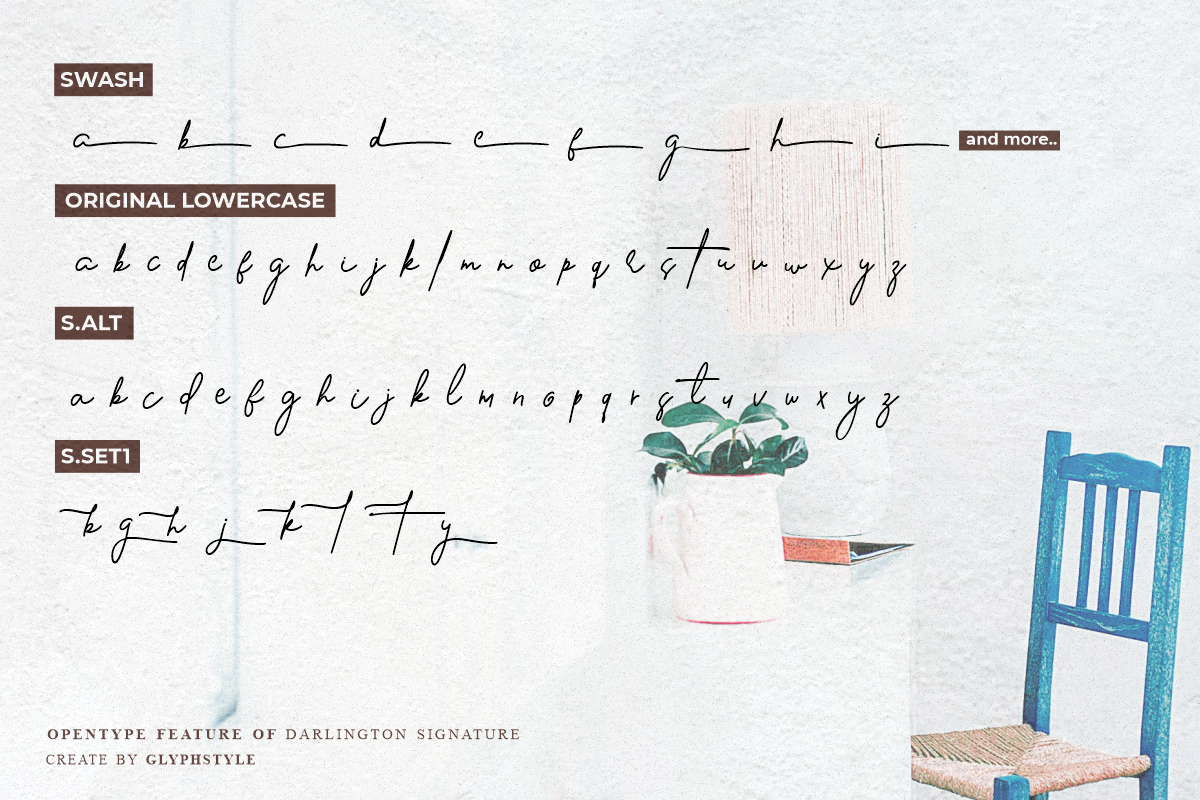 SWASH
a b c d e f g h i and more..
ORIGINAL LOWERCASE
a b c d e f g h i j k l m n o p q r s t u v w x y z
S.ALT
a b c d e f g h i j k l m n o p q r s t u v w x y z
S.SET1
b g h j k l t y
OPENTYPE FEATURE OF DARLINGTON SIGNATURE
CREATE BY GLYPHSTYLE